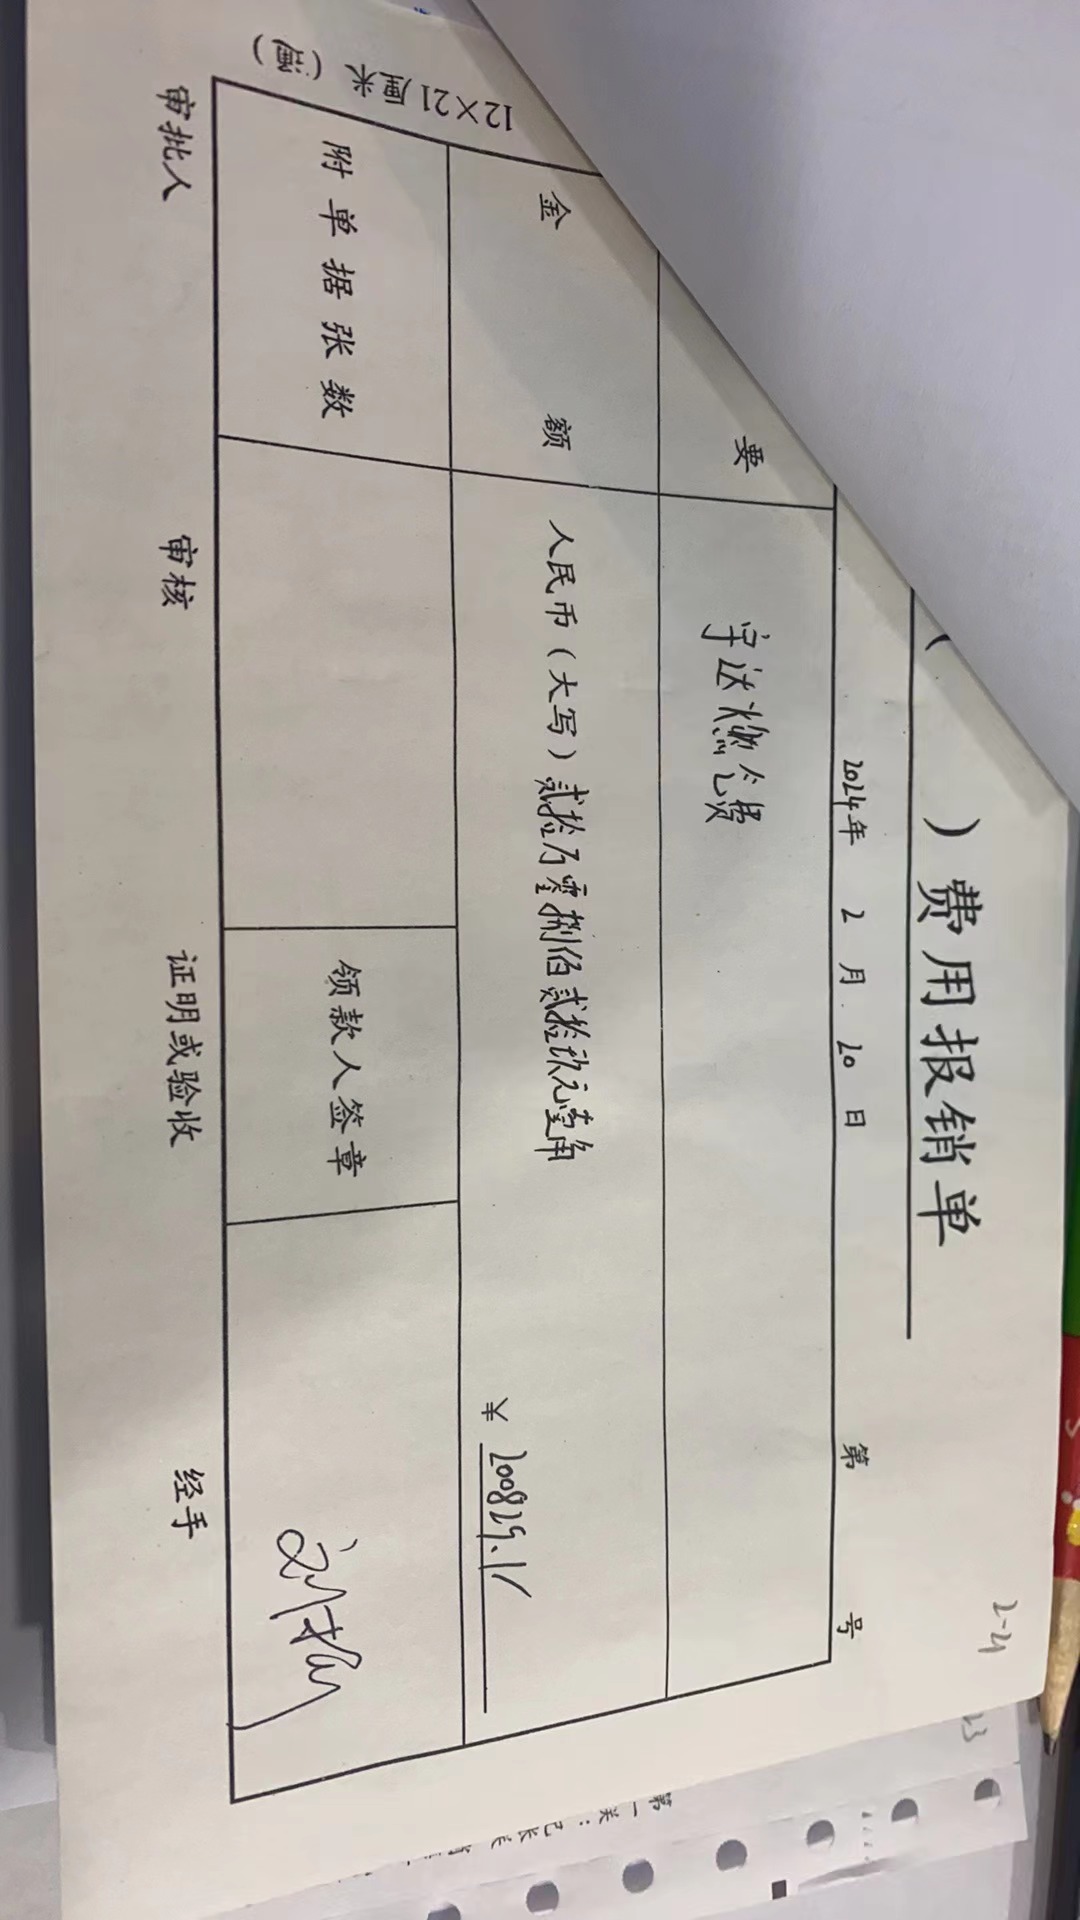 ）费用报销单
2024年 2月 20日 第 号
2-21
要 宇达燃气费
金额 人民币（大写）贰拾万零捌佰贰拾玖元壹角
¥ 200829.1
附单据张数 领款人签章
审批人 审核 证明或验收 经手
12×21厘米
第一关：已长